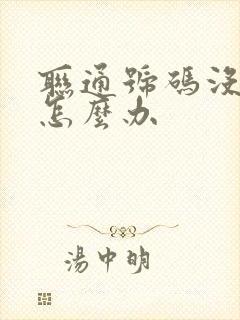 聯通號碼沒
怎麼办
湯中明